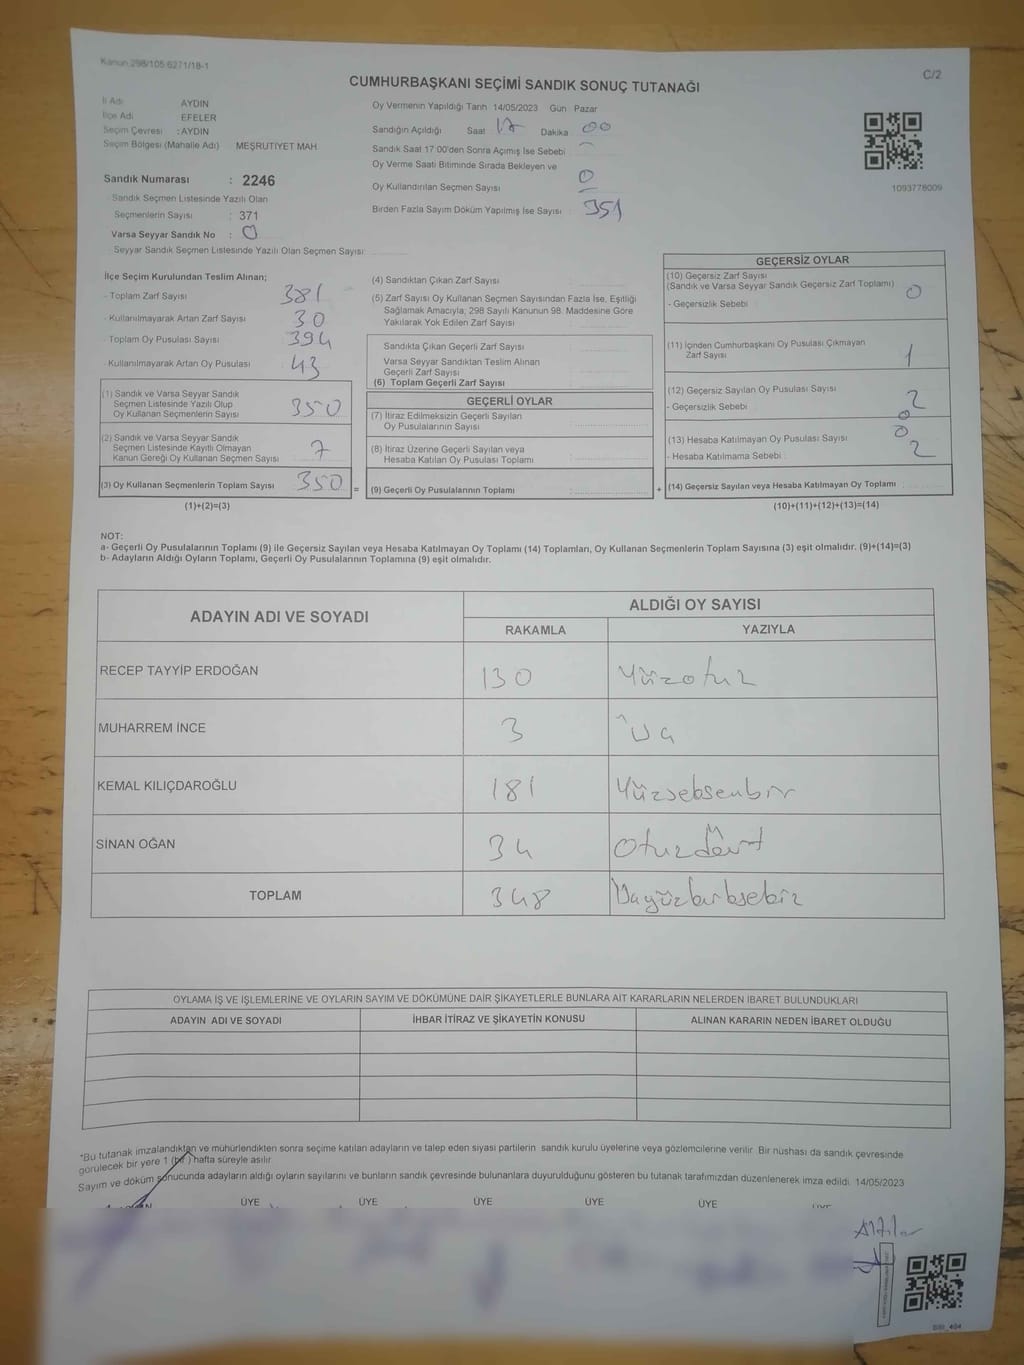 Kanun 298/105 6271/18-1
C/2
CUMHURBAŞKANI SEÇİMİ SANDIK SONUÇ TUTANAĞI
İl Adı AYDIN
İlçe Adı EFELER
Seçim Çevresi : AYDIN
Seçim Bölgesi (Mahalle Adı) MEŞRUTİYET MAH.
Sandık Numarası : 2246
Sandık Seçmen Listesinde Yazılı Olan
Seçmenlerin Sayısı : 371
Varsa Seyyar Sandık No : 0
Seyyar Sandık Seçmen Listesinde Yazılı Olan Seçmen Sayısı
Oy Vermenin Yapıldığı Tarih 14/05/2023 Gün Pazar
Sandığın Açıldığı Saat 17 Dakika 00
Sandık Saat 17:00'den Sonra Açımış İse Sebebi -
Oy Verme Saati Bitiminde Sırada Bekleyen ve
Oy Kullandırılan Seçmen Sayısı 0
Birden Fazla Sayım Döküm Yapılmış İse Sayısı 351
1093778009
İlçe Seçim Kurulundan Teslim Alınan;
- Toplam Zarf Sayısı 381
- Kullanılmayarak Artan Zarf Sayısı 30
- Toplam Oy Pusulası Sayısı 394
- Kullanılmayarak Artan Oy Pusulası 43
(1) Sandık ve Varsa Seyyar Sandık
Seçmen Listesinde Yazılı Olup
Oy Kullanan Seçmenlerin Sayısı 350
(2) Sandık ve Varsa Seyyar Sandık
Seçmen Listesinde Kayıtlı Olmayan
Kanun Gereği Oy Kullanan Seçmen Sayısı 7
(3) Oy Kullanan Seçmenlerin Toplam Sayısı 350
(1)+(2)=(3)
(4) Sandıktan Çıkan Zarf Sayısı
(5) Zarf Sayısı Oy Kullanan Seçmen Sayısından Fazla İse, Eşitliği
Sağlamak Amacıyla; 298 Sayılı Kanunun 98. Maddesine Göre
Yakılarak Yok Edilen Zarf Sayısı
Sandıkta Çıkan Geçerli Zarf Sayısı
Varsa Seyyar Sandıktan Teslim Alınan
Geçerli Zarf Sayısı
(6) Toplam Geçerli Zarf Sayısı
GEÇERLİ OYLAR
(7) İtiraz Edilmeksizin Geçerli Sayılan
Oy Pusulalarının Sayısı
(8) İtiraz Üzerine Geçerli Sayılan veya
Hesaba Katılan Oy Pusulası Toplamı
= (9) Geçerli Oy Pusulalarının Toplamı
GEÇERSİZ OYLAR
(10) Geçersiz Zarf Sayısı
(Sandık ve Varsa Seyyar Sandık Geçersiz Zarf Toplamı) 0
- Geçersizlik Sebebi
(11) İçinden Cumhurbaşkanı Oy Pusulası Çıkmayan
Zarf Sayısı 1
(12) Geçersiz Sayılan Oy Pusulası Sayısı 2
- Geçersizlik Sebebi 0
(13) Hesaba Katılmayan Oy Pusulası Sayısı 0
- Hesaba Katılmama Sebebi : 2
+ (14) Geçersiz Sayılan veya Hesaba Katılmayan Oy Toplamı
(10)+(11)+(12)+(13)=(14)
NOT:
a- Geçerli Oy Pusulalarının Toplamı (9) ile Geçersiz Sayılan veya Hesaba Katılmayan Oy Toplamı (14) Toplamları, Oy Kullanan Seçmenlerin Toplam Sayısına (3) eşit olmalıdır. (9)+(14)=(3)
b- Adayların Aldığı Oyların Toplamı, Geçerli Oy Pusulalarının Toplamına (9) eşit olmalıdır.
ADAYIN ADI VE SOYADI ALDIĞI OY SAYISI
RAKAMLA YAZIYLA
RECEP TAYYİP ERDOĞAN 130 Yüzotuz
MUHARREM İNCE 3 Üç
KEMAL KILIÇDAROĞLU 181 Yüzseksenbir
SİNAN OĞAN 34 Otuzdört
TOPLAM 348
OYLAMA İŞ VE İŞLEMLERİNE VE OYLARIN SAYIM VE DÖKÜMÜNE DAİR ŞİKAYETLERLE BUNLARA AİT KARARLARIN NELERDEN İBARET BULUNDUKLARI
ADAYIN ADI VE SOYADI İHBAR İTİRAZ VE ŞİKAYETİN KONUSU ALINAN KARARIN NEDEN İBARET OLDUĞU
*Bu tutanak imzalandıktan ve mühürlendikten sonra seçime katılan adayların ve talep eden siyasi partilerin sandık kurulu üyelerine veya gözlemcilerine verilir. Bir nüshası da sandık çevresinde
görülecek bir yere 1 (bir) hafta süreyle asılır.
Sayım ve döküm sonucunda adayların aldığı oyların sayılarını ve bunların sandık çevresinde bulunanlara duyurulduğunu gösteren bu tutanak tarafımızdan düzenlenerek imza edildi. 14/05/2023
ÜYE ÜYE ÜYE ÜYE ÜYE